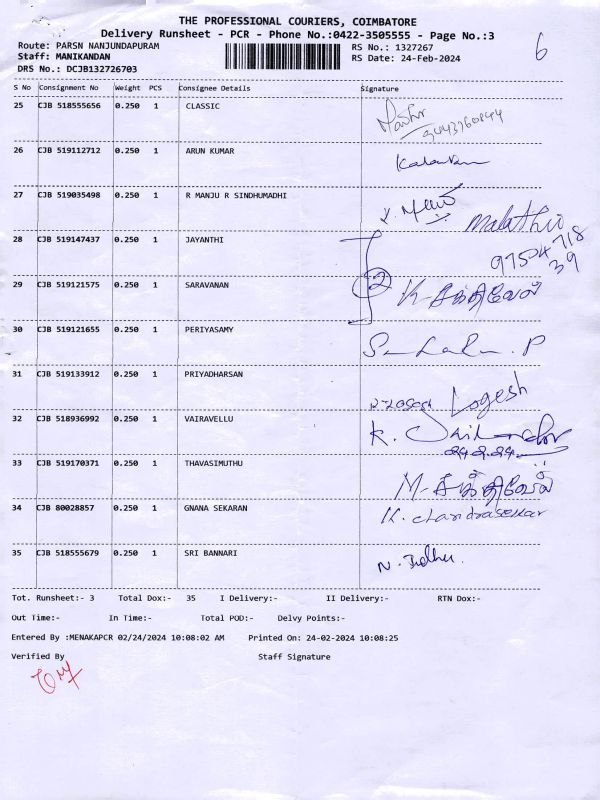 THE PROFESSIONAL COURIERS, COIMBATORE
Delivery Runsheet - PCR - Phone No.:0422-3505555 - Page No.:3
6
Route: PARSN NANJUNDAPURAM
RS No.: 1327267
Staff: MANIKANDAN
RS Date: 24-Feb-2024
DRS No.: DCJB132726703
S No Consignment No Weight PCS Consignee Details Signature
25 CJB 518555656 0.250 1 CLASSIC
26 CJB 519112712 0.250 1 ARUN KUMAR
27 CJB 519035498 0.250 1 R MANJU R SINDHUMADHI
Malathi
28 CJB 519147437 0.250 1 JAYANTHI
97504718
39
2
29 CJB 519121575 0.250 1 SARAVANAN K-சக்திவேல்
30 CJB 519121655 0.250 1 PERIYASAMY
31 CJB 519133912 0.250 1 PRIYADHARSAN Logesh
32 CJB 518936992 0.250 1 VAIRAVELLU K.
24.2.24
33 CJB 519170371 0.250 1 THAVASIMUTHU M-சக்திவேல்
34 CJB 80028857 0.250 1 GNANA SEKARAN K. chandrasekar
35 CJB 518555679 0.250 1 SRI BANNARI N.
Tot. Runsheet:- 3 Total Dox:- 35 I Delivery:- II Delivery:- RTN Dox:-
Out Time:- In Time:- Total POD:- Delvy Points:-
Entered By :MENAKAPCR 02/24/2024 10:08:02 AM Printed On: 24-02-2024 10:08:25
Verified By Staff Signature